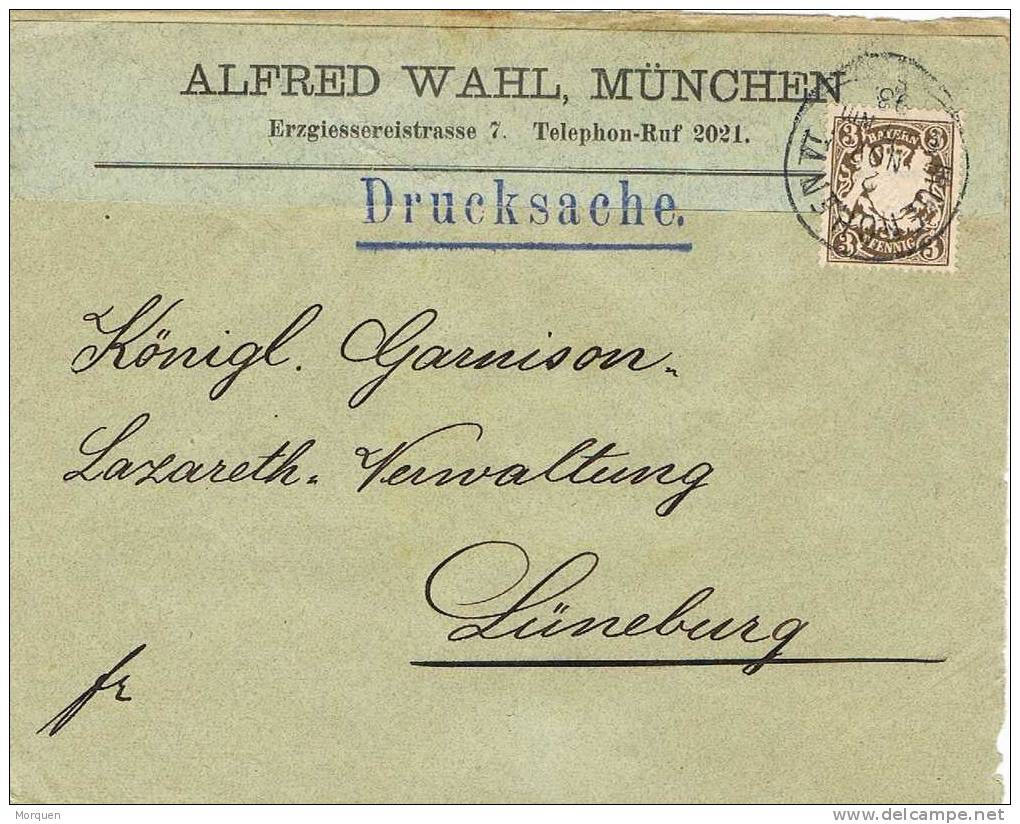 ALFRED WAHL, MÜNCHEN
Erzgiessereistrasse 7. Telephon-Ruf 2021.
Drucksache.
3 BAYERN 3
3 PFENNIG 3
Königl. Garnison-
Lazareth- Verwaltung
Lüneburg
fr
Morquen
delcampe.net